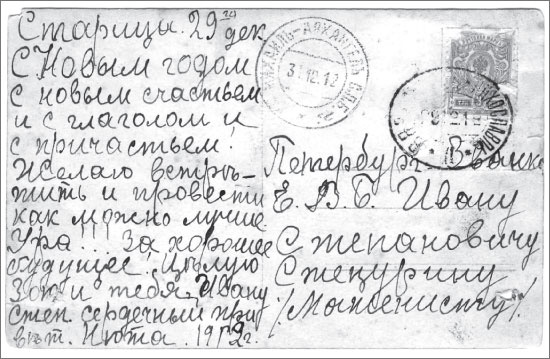 Старица. 29го дек
С Новым годом
с новым счастьем
и с глаголом и
с причастьем!
Желаю встрѣ-
тить и провести
как можно лучше
Ура!!! За хорошее
будущее! Цѣлую
Зою и тебя. Ивану
Степ. сердечный при
вѣт. Нюта. 1912 г.
МИХАИЛЪ-АРХАНГЕЛ
31.12.12
Петербург. В.
Е. В. Б. Ивану
Степановичу
Стецурину
/Машинисту/